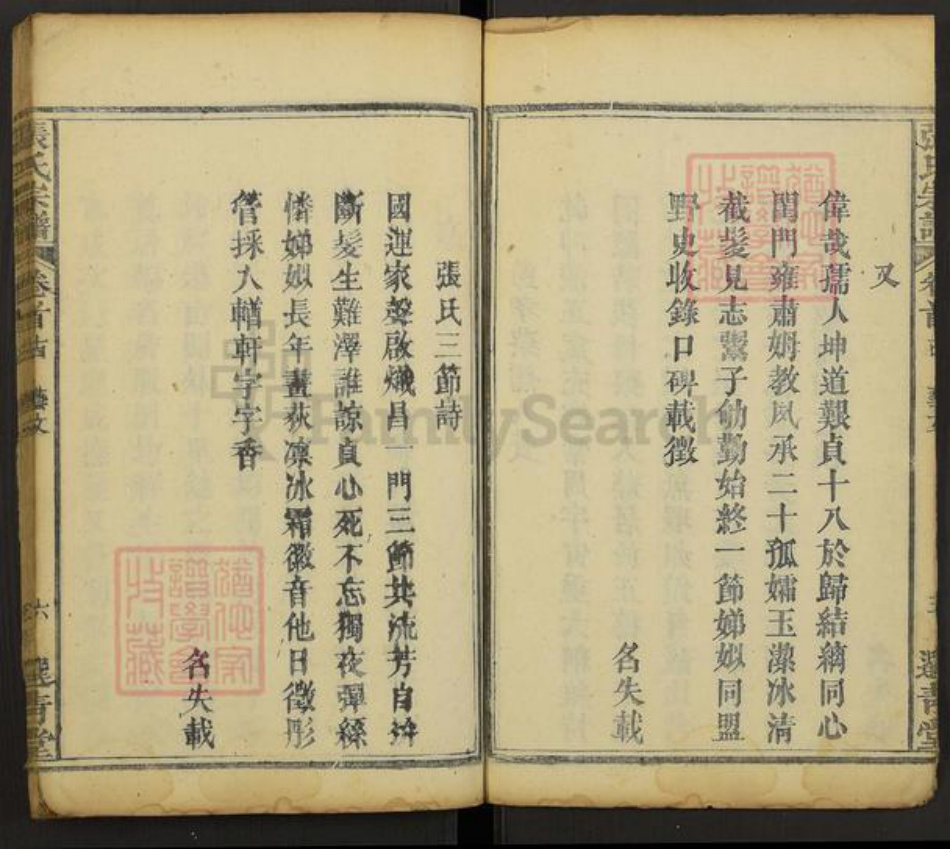 又
偉哉孺人坤道艱貞十八於歸結縭同心
閨門雍肅姆教夙承二十孤孀玉潔冰清
截髮見志鬻子劬勤始終一節娣姒同盟
野史收錄口碑載徵
名失載
張氏三節詩
國運家聲啟熾昌一門三節共流芳自拚
斷髮生難澤誰諒貞心死不忘獨夜彈絲
憐娣姒長年畫荻凛冰霜徽音他日徵彤
管採入輶軒字字香
名失載
張氏宗譜
卷首
藝文
六
FamilySearch